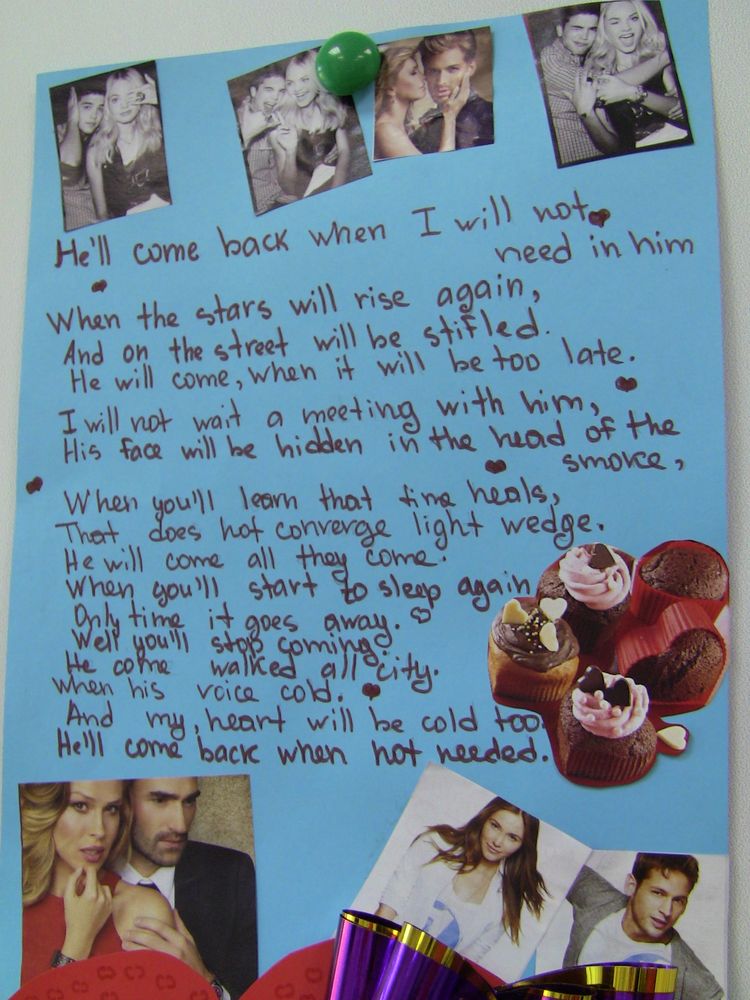 He'll come back when I will not
need in him
When the stars will rise again,
And on the street will be stifled.
He will come, when it will be too late.
I will not wait a meeting with him,
His face will be hidden in the head of the
smoke,
When you'll learn that time heals,
That does not converge light wedge.
He will come all they come.
When you'll start to sleep again
Only time it goes away.
Well you'll stop coming.
He come walked all city.
When his voice cold.
And my heart will be cold too.
He'll come back when not needed.